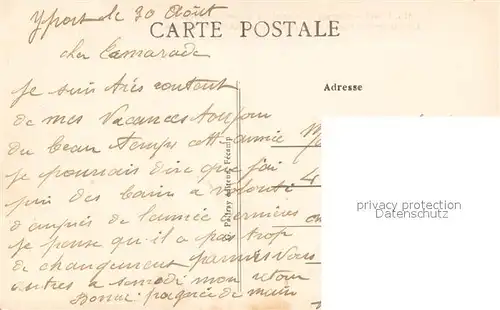 Yport le 30 Août
CARTE POSTALE
cher Camarade
Adresse
je suis très content
de mes Vacances toujour
du beau temps cette année
je pourrais dire que j'ai
4
pris des bain a volonté
d'auprès de l'année dernières
je pense qu'il a pas trop
de changement parmis vous
autres a samedi mon retour
Bonne poignée de main
éditeur, Fécamp
privacy protection
Datenschutz